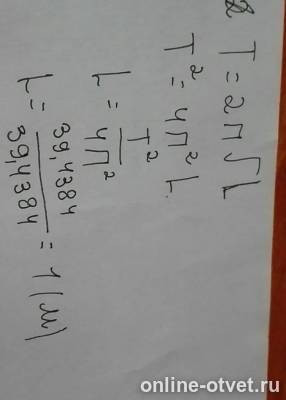 2 T = 2π√L
T² = 4π²L
L = T²/4π²
L = 39,4384/39,4384 = 1 (м)
online-otvet.ru